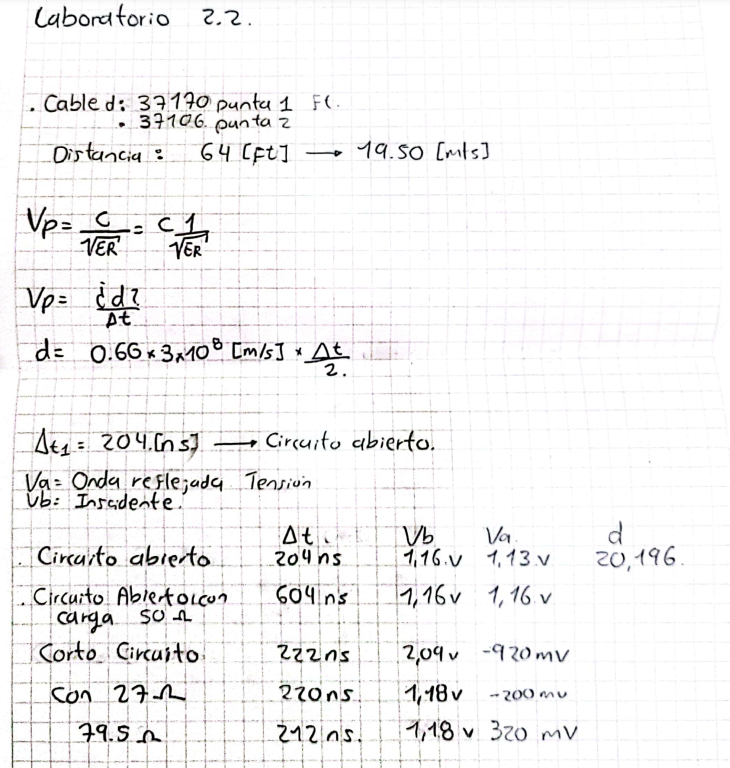 Laboratorio 2.2.
. Cable d: 37170 punta 1 Ft.
• 37106 punta 2
Distancia : 64 [Ft] → 19.50 [m/s]
Vp = C/√ER = C 1/√ER
Vp = ¿d?/Δt
d = 0.66 × 3×10⁸ [m/s] * Δt/2.
Δt1 = 204.[ns] → Circuito abierto.
Va = Onda reflejada Tensión
Vb: Insidente.
Δt. Vb Va. d
. Circuito abierto 204 ns 1,16.v 1,13.v 20,196.
. Circuito Abierto con 604 ns 1,16 v 1,16.v
carga 50 Ω
Corto Circuito 222 ns 2,09 v -920 mv
Con 27 Ω 220 ns. 1,18 v -200 mv
79.5 Ω 212 ns. 1,18 v 320 mV